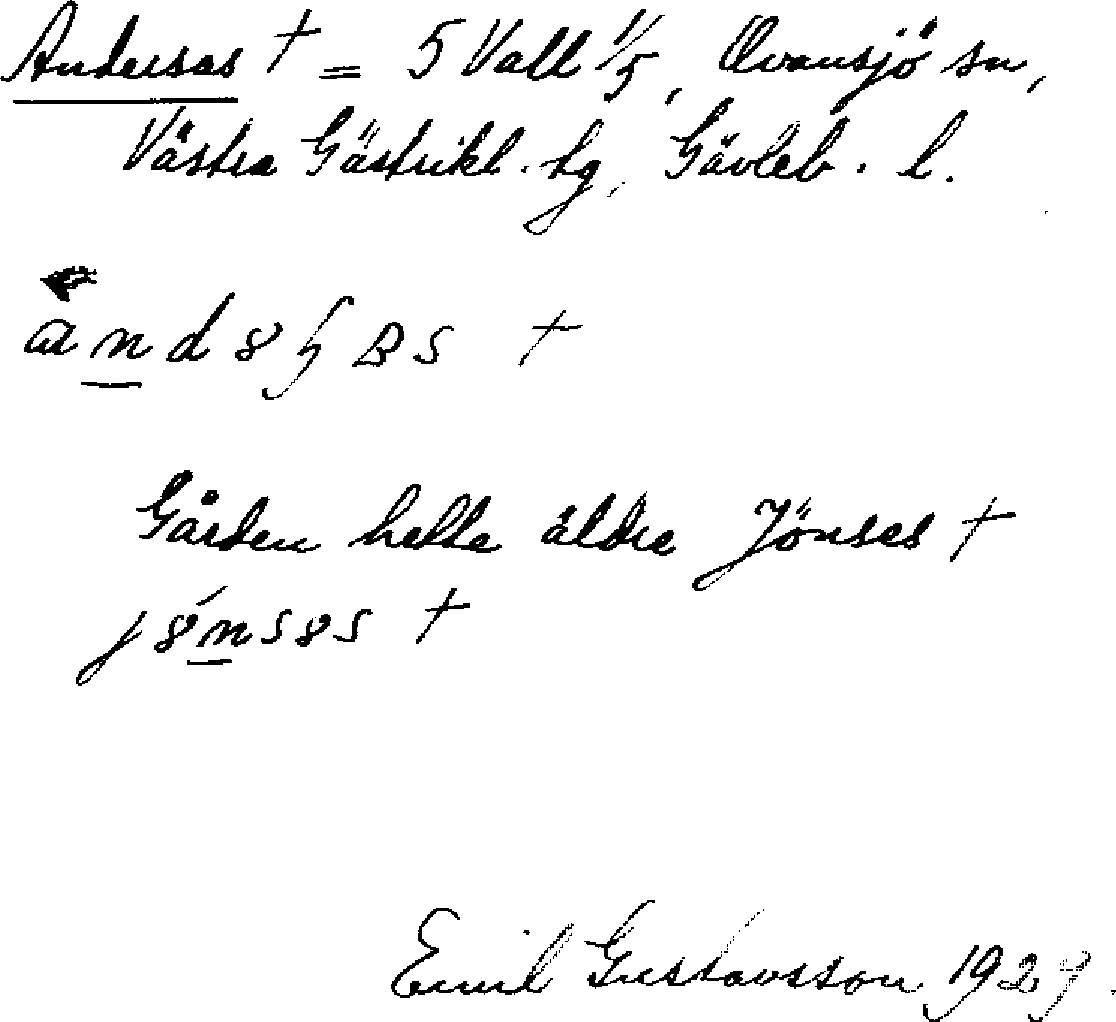 Andersas † = 5 Vall 1/5, Ovansjö sn,
Västra Gästrikl. tg, Gävleb. l.
Gården hette äldre Jönses †
Emil Gustavsson 1929.